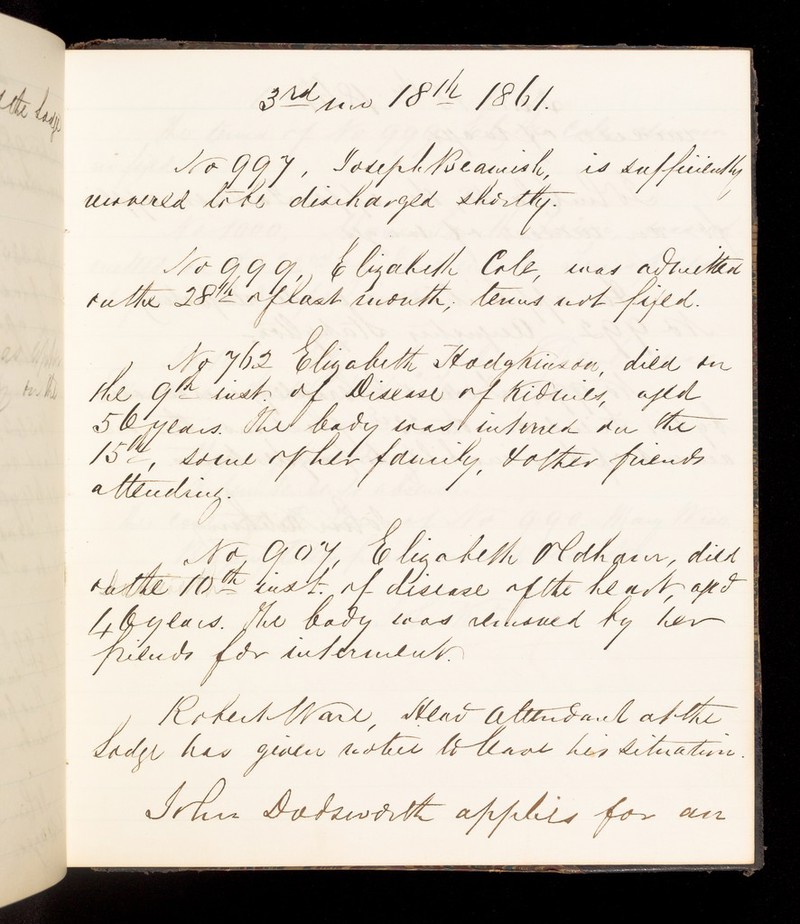 the Lodge
3rd mo 18th 1861.
No 997, Joseph Beamish, is sufficiently
recovered to be discharged shortly.
No 999, Elizabeth Cole, was admitted
on the 28th of last month; terms not fixed.
No 762 Elizabeth Hodgkinson, died on
the 9th inst. of Disease of Kidnies, aged
56 years. The body was interred on the
15th, some of her family, & other friends
attending.
No 907, Elizabeth Oldham, died
on the 10th inst. of disease of the heart, aged
46 years. The body was removed by her
friends for interment.
Robert Ware, Head Attendant at the
Lodge has given notice to leave his situation.
John Dodsworth applies for an